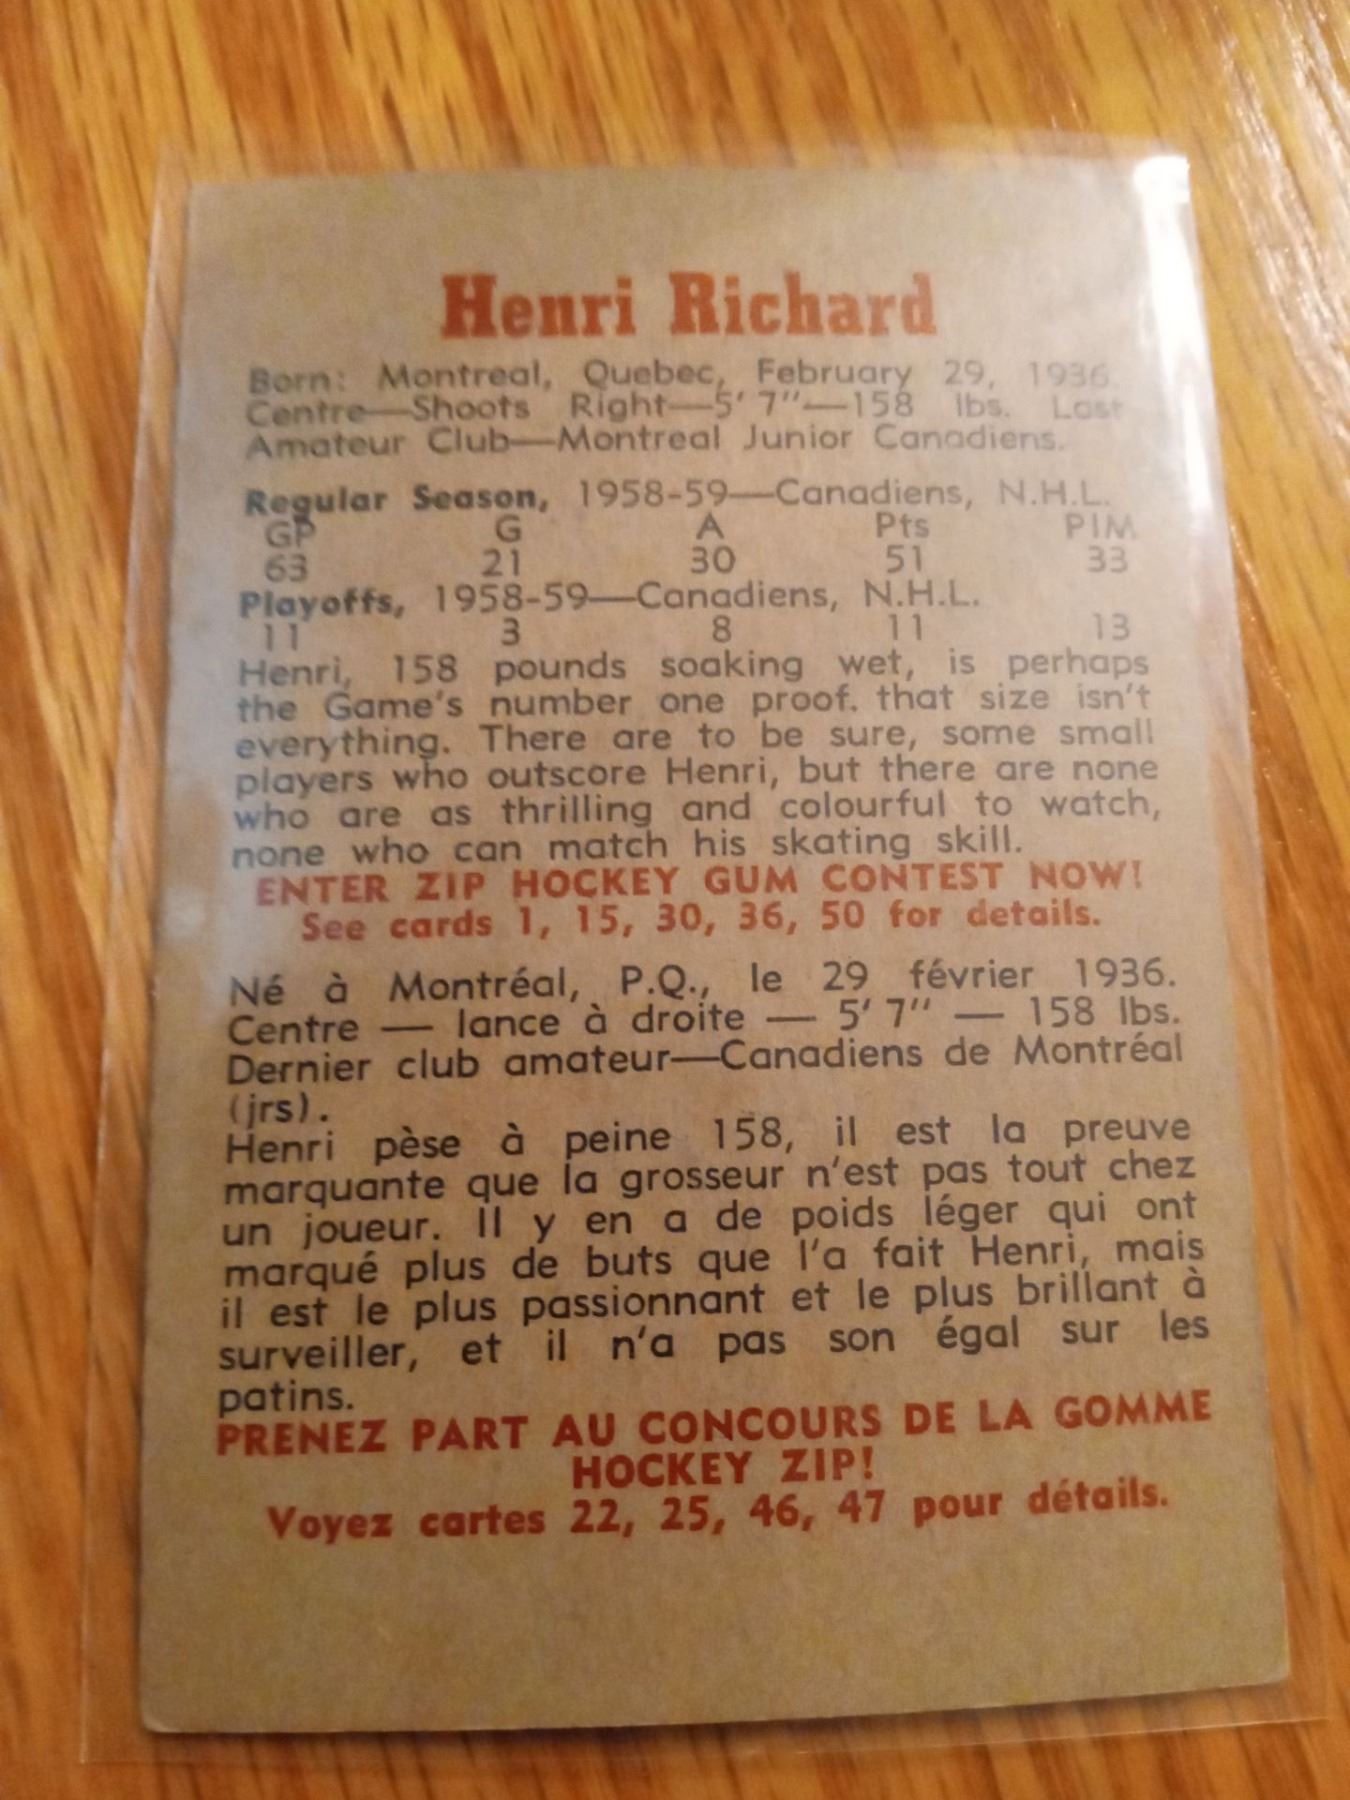 Henri Richard
Born: Montreal, Quebec, February 29, 1936.
Centre—Shoots Right—5' 7"—158 lbs. Last
Amateur Club—Montreal Junior Canadiens.
Regular Season, 1958-59—Canadiens, N.H.L.
GP G A Pts PIM
63 21 30 51 33
Playoffs, 1958-59—Canadiens, N.H.L.
11 3 8 11 13
Henri, 158 pounds soaking wet, is perhaps
the Game's number one proof. that size isn't
everything. There are to be sure, some small
players who outscore Henri, but there are none
who are as thrilling and colourful to watch,
none who can match his skating skill.
ENTER ZIP HOCKEY GUM CONTEST NOW!
See cards 1, 15, 30, 36, 50 for details.
Né à Montréal, P.Q., le 29 février 1936.
Centre — lance à droite — 5' 7" — 158 lbs.
Dernier club amateur—Canadiens de Montréal
(jrs).
Henri pèse à peine 158, il est la preuve
marquante que la grosseur n'est pas tout chez
un joueur. Il y en a de poids léger qui ont
marqué plus de buts que l'a fait Henri, mais
il est le plus passionnant et le plus brillant à
surveiller, et il n'a pas son égal sur les
patins.
PRENEZ PART AU CONCOURS DE LA GOMME
HOCKEY ZIP!
Voyez cartes 22, 25, 46, 47 pour détails.